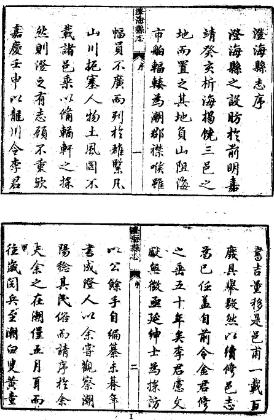 澄海縣志序
澄海縣之設昉於前明嘉
靖癸亥析海揭饒三邑之
地而置之其地負山阻海
市舶輻輳為潮郡襟喉雖
澄海縣志
序
一
幅員不廣而列於雄繁凡
山川扼塞人物土風罔不
載諸邑乘以備輶軒之採
然則澄之有志顧不重歟
嘉慶壬申以龍川令李君
書吉量移是邑甫一載百
廢具舉毅然以續修邑志
為己任蓋自前令金君修
之垂五十年矣李君慮文
獻無徵亟延紳士為採訪
澄海縣志
二
以公餘手自編纂未朞年
書成澄人以余嘗觀察潮
陽稔其民俗而請序於余
夫余之在潮僅五月耳而
往歲閱兵至潮白叟黄童
1